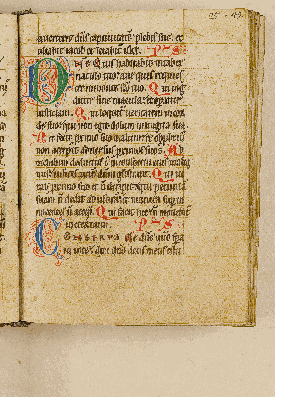 auerterit dns captiuitatem plebis sue ex
ultabit iacob et letabitur isrl. Ps
Domine quis habitabit in taber
naculo tuo aut quis requies
cet in monte sco tuo. Qui ing
ditur sine macula et operatur
iusticiam. Qui loquitur veritatem in cor
de suo qui non egit dolum in lingua sua
Nec fecit proximo suo malum et obprobriu
non accepit aduersus proximos suos. Ad
nichilum deductus est in conspectu eius malig
nus timentes autem dnm glorificat. Qui iu
rat proximo suo et non decipit qui pecuniam
suam non dedit ad usuram et munera super in
nocentem non accepit. Qui facit hec non mouebit
in eternum. Ps
Conserua me dne quo spe
raui in te dixi dno deus meus es tu